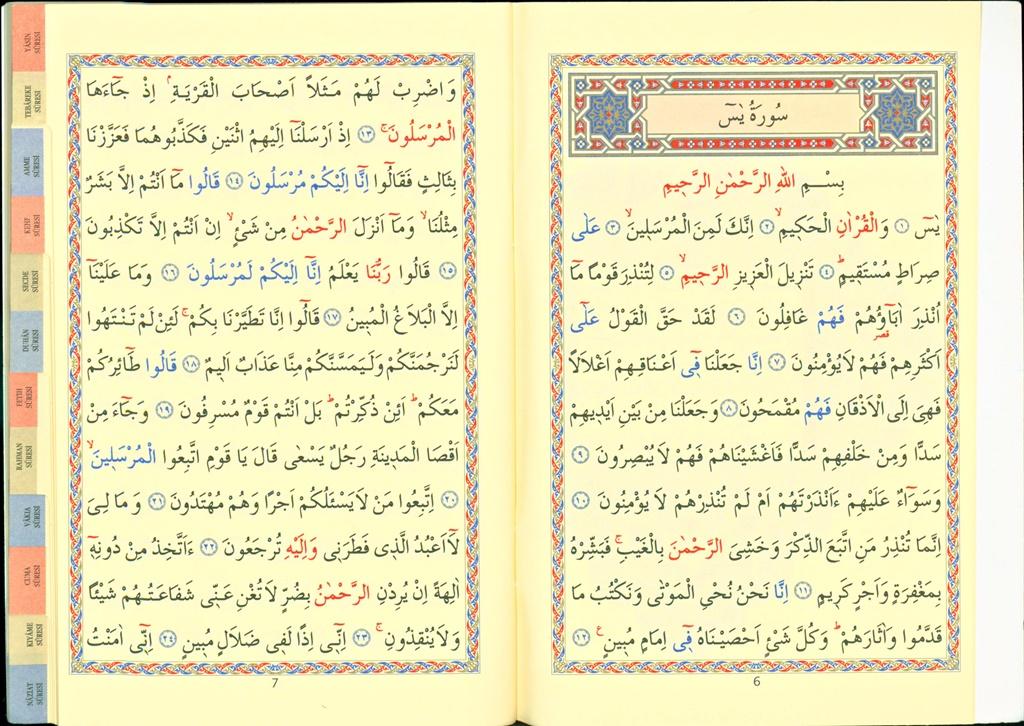 سُورَةُ يٰسٓ
بِسْــمِ اللّٰهِ الرَّحْمٰنِ الرَّح۪يمِ
يٰسٓ ﴿١﴾ وَالْقُرْاٰنِ الْحَك۪يمِۙ ﴿٢﴾ اِنَّكَ لَمِنَ الْمُرْسَل۪ينَۙ ﴿٣﴾ عَلٰى
صِرَاطٍ مُسْتَق۪يمٍۜ ﴿٤﴾ تَنْز۪يلَ الْعَز۪يزِ الرَّح۪يمِۙ ﴿٥﴾ لِتُنْذِرَ قَوْمًا مَٓا
اُنْذِرَ اٰبَٓاؤُ۬هُمْ فَهُمْ غَافِلُونَ ﴿٦﴾ لَقَدْ حَقَّ الْقَوْلُ عَلٰٓى
قصر
اَكْثَرِهِمْ فَهُمْ لَا يُؤْمِنُونَ ﴿٧﴾ اِنَّا جَعَلْنَا ف۪ٓي اَعْنَاقِهِمْ اَغْلَالًا
فَهِيَ اِلَى الْاَذْقَانِ فَهُمْ مُقْمَحُونَ ﴿٨﴾ وَجَعَلْنَا مِنْ بَيْنِ اَيْد۪يهِمْ
سَدًّا وَمِنْ خَلْفِهِمْ سَدًّا فَاَغْشَيْنَاهُمْ فَهُمْ لَا يُبْصِرُونَ ﴿٩﴾
وَسَوَٓاءٌ عَلَيْهِمْ ءَاَنْذَرْتَهُمْ اَمْ لَمْ تُنْذِرْهُمْ لَا يُؤْمِنُونَ ﴿١٠﴾
اِنَّمَا تُنْذِرُ مَنِ اتَّبَعَ الذِّكْرَ وَخَشِيَ الرَّحْمٰنَ بِالْغَيْبِۚ فَبَشِّرْهُ
بِمَغْفِرَةٍ وَاَجْرٍ كَر۪يمٍ ﴿١١﴾ اِنَّا نَحْنُ نُحْيِ الْمَوْتٰى وَنَكْتُبُ مَا
قَدَّمُوا وَاٰثَارَهُمْۜ وَكُلَّ شَيْءٍ اَحْصَيْنَاهُ ف۪ٓي اِمَامٍ مُب۪ينٍ۟ ع ﴿١٢﴾
6
وَاضْرِبْ لَهُمْ مَثَلًا اَصْحَابَ الْقَرْيَةِۢ اِذْ جَٓاءَهَا
الْمُرْسَلُونَۚ ﴿١٣﴾ اِذْ اَرْسَلْنَٓا اِلَيْهِمُ اثْنَيْنِ فَكَذَّبُوهُمَا فَعَزَّزْنَا
بِثَالِثٍ فَقَالُٓوا اِنَّٓا اِلَيْكُمْ مُرْسَلُونَ ﴿١٤﴾ قَالُوا مَٓا اَنْتُمْ اِلَّا بَشَرٌ
مِثْلُنَاۙ وَمَٓا اَنْزَلَ الرَّحْمٰنُ مِنْ شَيْءٍۙ اِنْ اَنْتُمْ اِلَّا تَكْذِبُونَ
﴿١٥﴾ قَالُوا رَبُّنَا يَعْلَمُ اِنَّٓا اِلَيْكُمْ لَمُرْسَلُونَ ﴿١٦﴾ وَمَا عَلَيْنَٓا
اِلَّا الْبَلَاغُ الْمُب۪ينُ ﴿١٧﴾ قَالُٓوا اِنَّا تَطَيَّرْنَا بِكُمْۚ لَئِنْ لَمْ تَنْتَهُوا
لَنَرْجُمَنَّكُمْ وَلَيَمَسَّنَّكُمْ مِنَّا عَذَابٌ اَل۪يمٌ ﴿١٨﴾ قَالُوا طَٓائِرُكُمْ
مَعَكُمْۜ اَئِنْ ذُكِّرْتُمْۜ بَلْ اَنْتُمْ قَوْمٌ مُسْرِفُونَ ﴿١٩﴾ وَجَٓاءَ مِنْ
اَقْصَا الْمَد۪ينَةِ رَجُلٌ يَسْعٰى قَالَ يَا قَوْمِ اتَّبِعُوا الْمُرْسَل۪ينَۙ
﴿٢٠﴾ اِتَّبِعُوا مَنْ لَا يَسْـَٔلُكُمْ اَجْرًا وَهُمْ مُهْتَدُونَ ﴿٢١﴾ وَمَا لِيَ
لَٓا اَعْبُدُ الَّذ۪ي فَطَرَن۪ي وَاِلَيْهِ تُرْجَعُونَ ﴿٢٢﴾ ءَاَتَّخِذُ مِنْ دُونِه۪ٓ
اٰلِهَةً اِنْ يُرِدْنِ الرَّحْمٰنُ بِضُرٍّ لَا تُغْنِ عَنّ۪ي شَفَاعَتُهُمْ شَيْـًٔا
وَلَا يُنْقِذُونِۚ ﴿٢٣﴾ اِنّ۪ٓي اِذًا لَف۪ي ضَلَالٍ مُب۪ينٍ ﴿٢٤﴾ اِنّ۪ٓي اٰمَنْتُ
7
YÂSÎN SÛRESİ
TEBÂREKE SÛRESİ
AMME SÛRESİ
KEHF SÛRESİ
SECDE SÛRESİ
DUHÂN SÛRESİ
FETİH SÛRESİ
RAHMAN SÛRESİ
VÂKIA SÛRESİ
CUMA SÛRESİ
KIYÂME SÛRESİ
NÂZİAT SÛRESİ